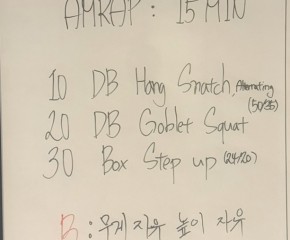 AMRAP : 15 MIN
10 DB Hang Snatch, Alternating (50/35)
20 DB Goblet Squat
30 Box Step up (24/20)
B : 무게 자유 높이 자유